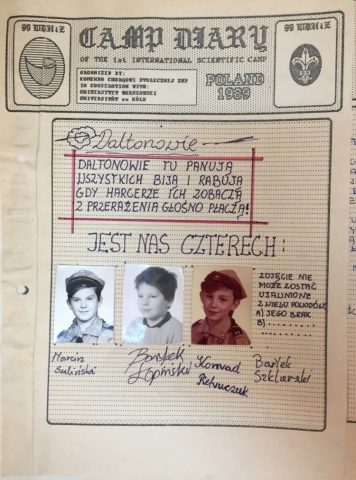 ZHR 55
CAMP DIARY
OF THE 1st INTERNATIONAL SCIENTIFIC CAMP
ORGANIZED BY:
KOMENDA CHORĄGWI STOŁECZNEJ ZHP
IN COOPERATION WITH:
UNIWERSYTET WARSZAWSKI
UNIVERSITÄT zu KÖLN
POLAND
1989
Daltonowie
DALTONOWIE TU PANUJĄ
WSZYSTKICH BIJĄ I RABUJĄ
GDY HARCERZE ICH ZOBACZĄ
Z PRZERAŻENIA GŁOŚNO PŁACZĄ!
JEST NAS CZTERECH:
ZDJĘCIE NIE
MOŻE ZOSTAĆ
UJAWNIONE
Z WIELU POWODÓW:
A) JEGO BRAK
B)..........
Marcin
Suliński
Bartek
Konrad
Bartek
Szklarski